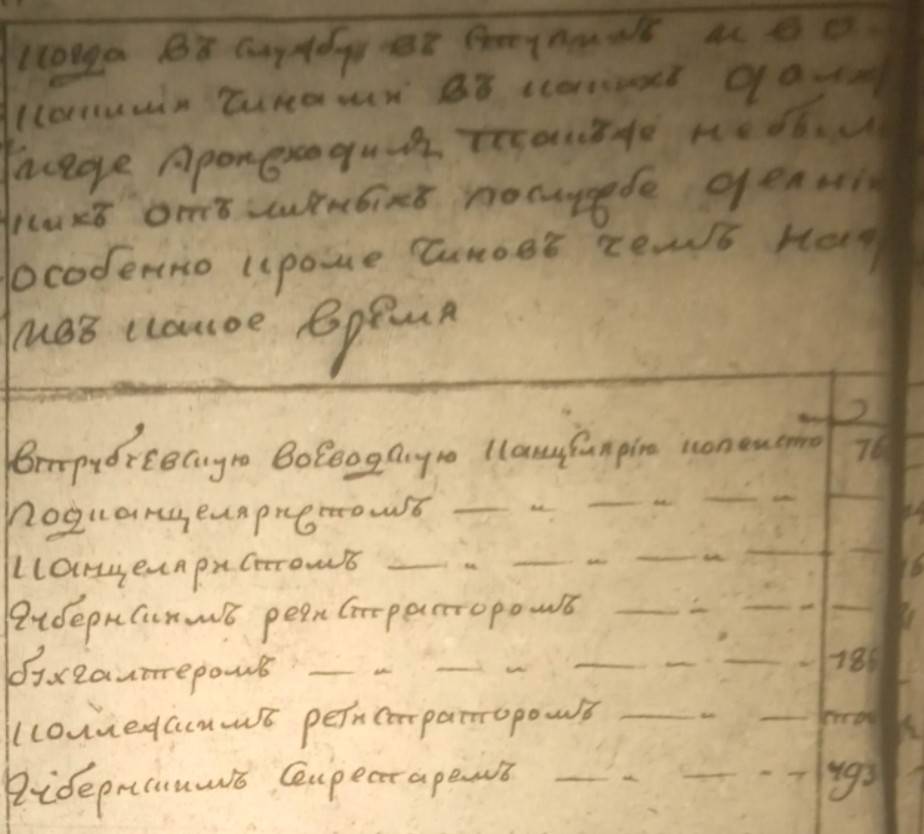 Когда въ службу въ ступилъ и во
какими чинами въ какихъ долж
и где происходилъ такъже небыл
какихъ отъличныхъ послужбе деяни
особенно кроме чиновъ чемъ наг
ивъ какое время
втрубчевскую воеводскую канцелярию копеисто 76
подканцеляристомъ — „ — „ — „ —
канцеляристомъ — „ — „ — „ —
губернскимъ регистраторомъ — „ — - —
бухгалтеромъ — „ — „ — „ — - 186
коллежскимъ регистраторомъ — „ —
губернскимъ секретаремъ — „ — - - 793